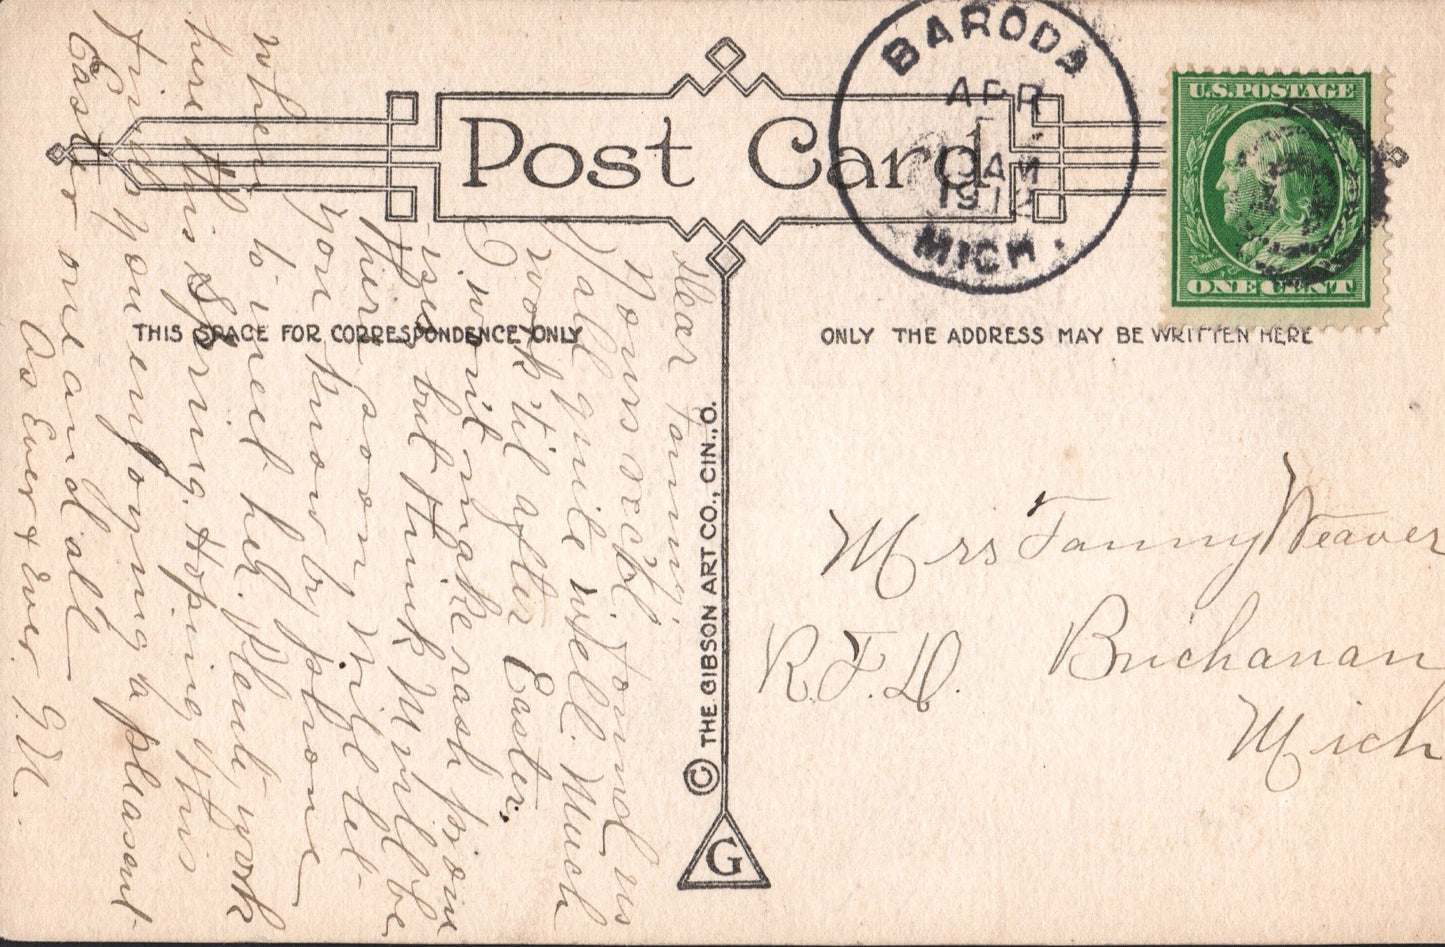 Post Card
BARODA
APR
1
AM
191
MICH.
U.S. POSTAGE
ONE CENT
THIS SPACE FOR CORRESPONDENCE ONLY
ONLY THE ADDRESS MAY BE WRITTEN HERE
Dear Fanny;
Yours rec'd, found us
all quite well. Much
work 'til after Easter.
I won't make rash prom
ises but think M. will be
there soon, will let
you know by phone
when to meet her. Plenty work
here this Spring. Hoping this
finds you enjoying a pleasant
Easter one and all
As Ever & Ever G.N.
© THE GIBSON ART CO., CIN., O.
G
Mrs Fanny Weaver
R.F.D. Buchanan
Mich